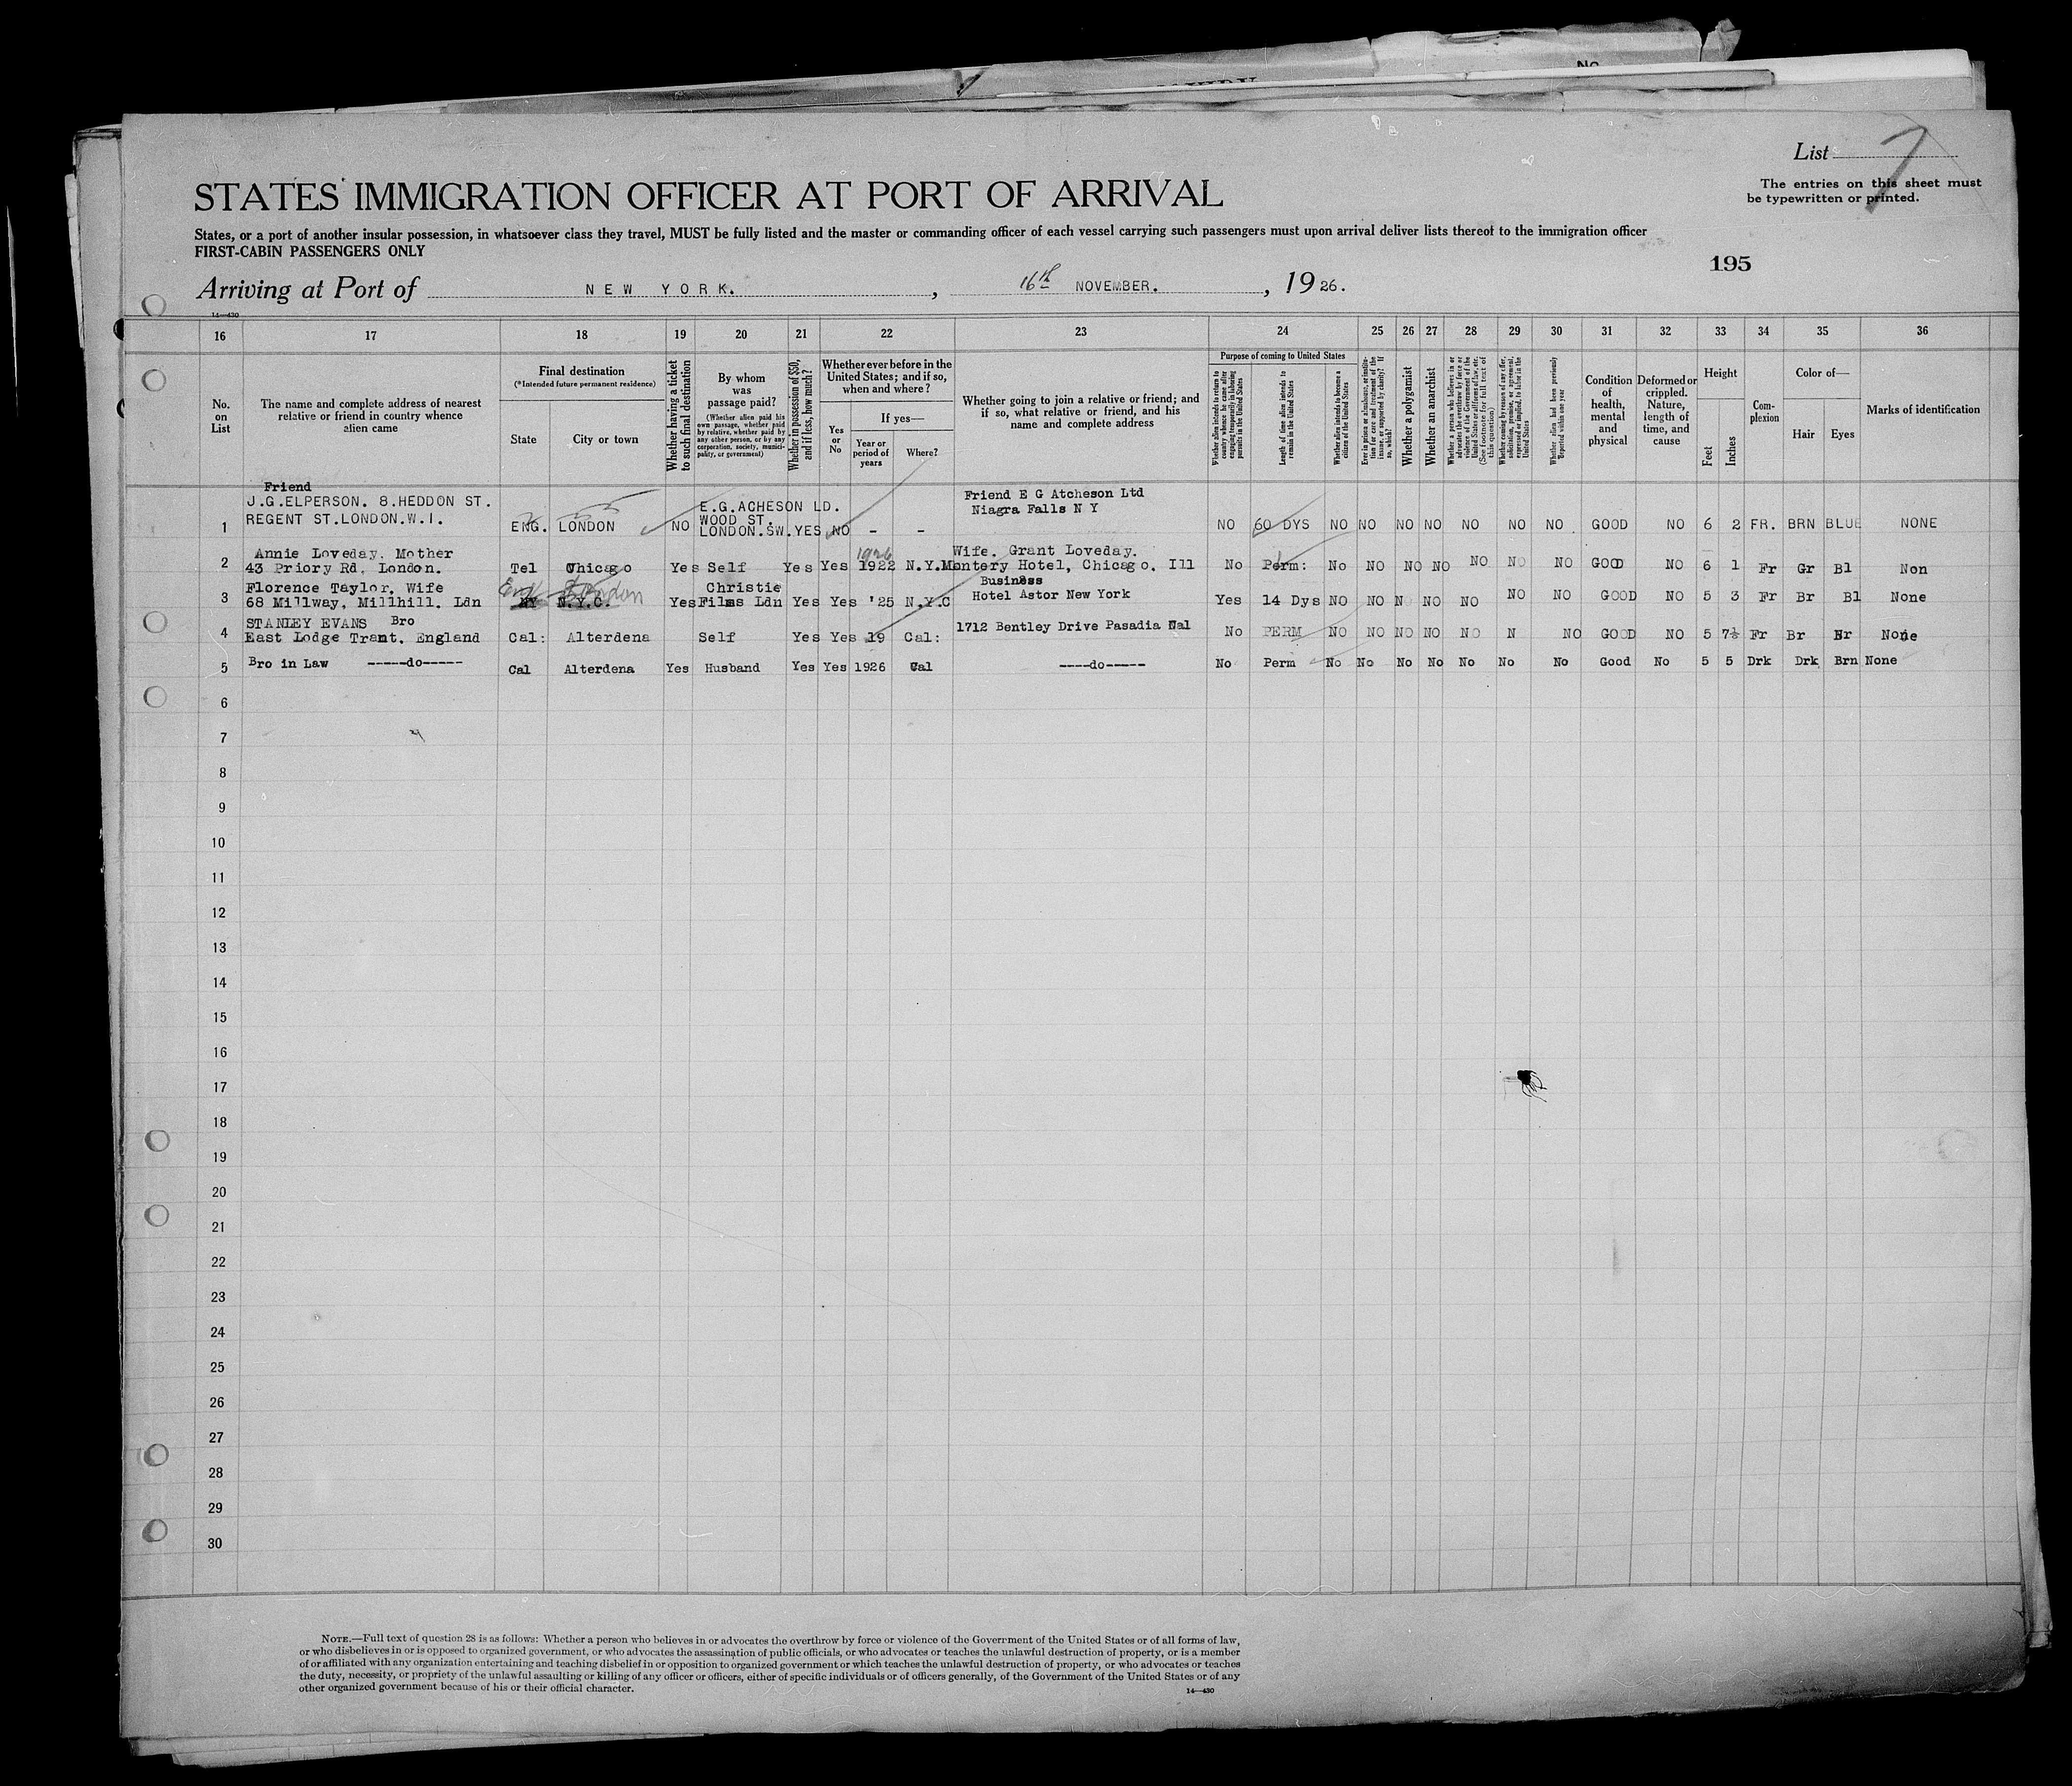 No
List 7
The entries on this sheet must
be typewritten or printed.
STATES IMMIGRATION OFFICER AT PORT OF ARRIVAL
States, or a port of another insular possession, in whatsoever class they travel, MUST be fully listed and the master or commanding officer of each vessel carrying such passengers must upon arrival deliver lists thereof to the immigration officer
FIRST-CABIN PASSENGERS ONLY
195
Arriving at Port of NEW YORK. , 16th NOVEMBER. , 1926.
14—430
16 17 18 19 20 21 22 23 24 25 26 27 28 29 30 31 32 33 34 35 36
No.
on
List
The name and complete address of nearest
relative or friend in country whence
alien came
Final destination
(*Intended future permanent residence)
State City or town
Whether having a ticket
to such final destination
By whom
was
passage paid?
(Whether alien paid his
own passage, whether paid
by relative, whether paid by
any other person, or by any
corporation, society, munici-
pality, or government)
Whether in possession of $50,
and if less, how much?
Whether ever before in the
United States; and if so,
when and where?
Yes
or
No
If yes—
Year or
period of
years
Where?
Whether going to join a relative or friend; and
if so, what relative or friend, and his
name and complete address
Purpose of coming to United States
Whether alien intends to return to
country whence he came after
engaging temporarily in laboring
pursuits in the United States
Length of time alien intends to
remain in the United States
Whether alien intends to become a
citizen of the United States
Ever in prison or almshouse, or institu-
tion for care and treatment of the
insane, or supported by charity? If
so, which?
Whether a polygamist
Whether an anarchist
Whether a person who believes in or
advocates the overthrow by force or
violence of the Government of the
United States or all forms of law, etc.
(See footnote for full text of
this question)
Whether coming by reason of any offer,
solicitation, promise, or agreement,
expressed or implied, to labor in the
United States
Whether alien had been previously
deported within one year
Condition
of
health,
mental
and
physical
Deformed or
crippled.
Nature,
length of
time, and
cause
Height
Feet Inches
Com-
plexion
Color of—
Hair Eyes
Marks of identification
Friend
J.G.ELPERSON. 8.HEDDON ST.
REGENT ST.LONDON.W.I.
1 ENG. LONDON NO E.G.ACHESON LD.
WOOD ST.
LONDON.SW. YES NO - -
Friend E G Atcheson Ltd
Niagra Falls N Y
NO 60 DYS NO NO NO NO NO NO NO GOOD NO 6 2 FR. BRN BLUE NONE
Annie Loveday. Mother
2 43 Priory Rd. London. Tel Chicago Yes Self Yes Yes 1926 1922 N.Y.
Wife. Grant Loveday.
Montery Hotel, Chicago. Ill
No Perm: No NO NO NO NO NO NO GOOD NO 6 1 Fr Gr Bl Non
Florence Taylor. Wife
3 68 Millway. Millhill. Ldn Eng London NY N.Y.C. Yes Christie
Films Ldn Yes Yes '25 N.Y.C
Business
Hotel Astor New York
Yes 14 Dys NO NO N NO NO NO NO GOOD NO 5 3 Fr Br Bl None
STANLEY EVANS Bro
4 East Lodge Trant. England Cal: Alterdena Self Yes Yes 19 Cal:
1712 Bentley Drive Pasadia Cal
No PERM NO NO NO NO NO N NO GOOD NO 5 7½ Fr Br Br None
5 Bro in Law -----do----- Cal Alterdena Yes Husband Yes Yes 1926 Cal
----do-----
No Perm No No No No No No No Good No 5 5 Drk Drk Brn None
6
7
8
9
10
11
12
13
14
15
16
17
18
19
20
21
22
23
24
25
26
27
28
29
30
NOTE.—Full text of question 28 is as follows: Whether a person who believes in or advocates the overthrow by force or violence of the Government of the United States or of all forms of law,
or who disbelieves in or is opposed to organized government, or who advocates the assassination of public officials, or who advocates or teaches the unlawful destruction of property, or is a member
of or affiliated with any organization entertaining and teaching disbelief in or opposition to organized government or which teaches the unlawful destruction of property, or who advocates or teaches
the duty, necessity, or propriety of the unlawful assaulting or killing of any officer or officers, either of specific individuals or of officers generally, of the Government of the United States or of any
other organized government because of his or their official character.
14—430